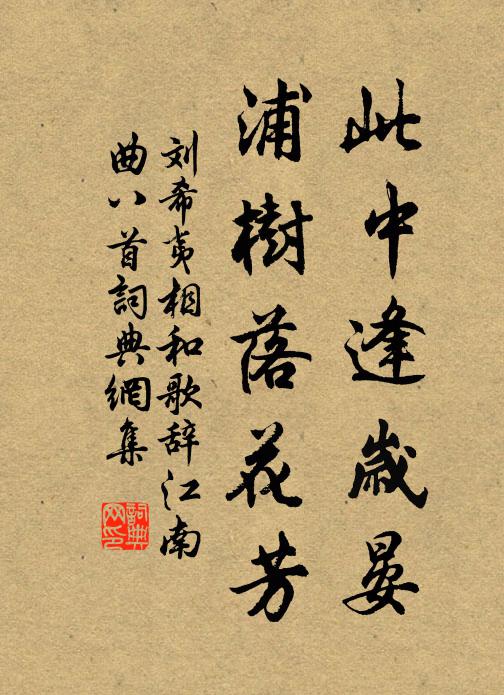 此中逢歲晏
浦樹落花芳
刘希夷相和歌辞江南
曲八首詞典網集
詞典
网印